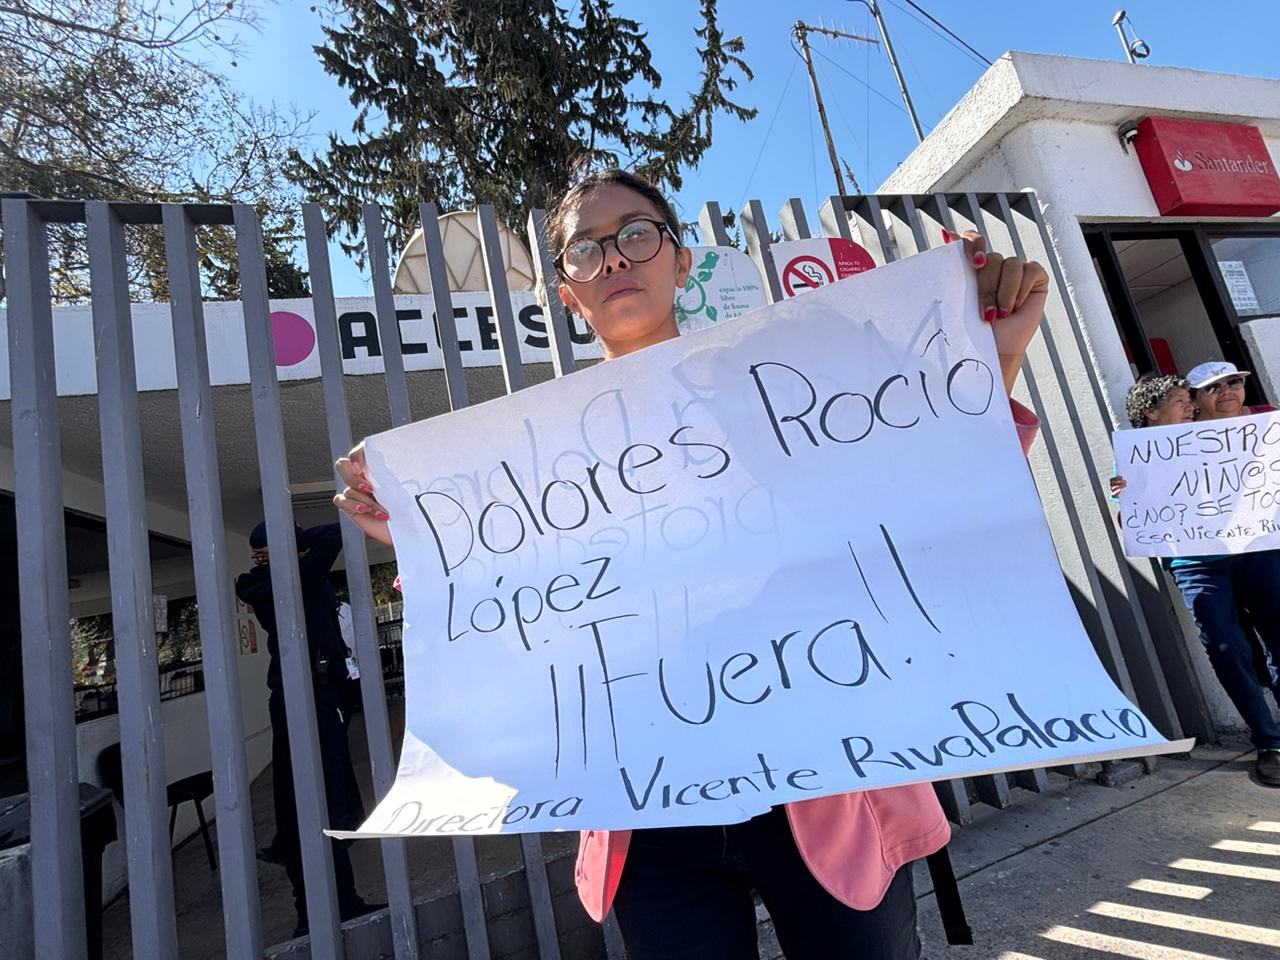 ACCESO
espacio 100%
libre
de humo
APAGA TU
CIGARRO, O
Santander
Dolores Rocío
López
¡¡¡Fuera!!
Directora Vicente RivaPalacio
NUESTRO
NIÑ@S
¿NO? SE TOC
Esc. Vicente Riv